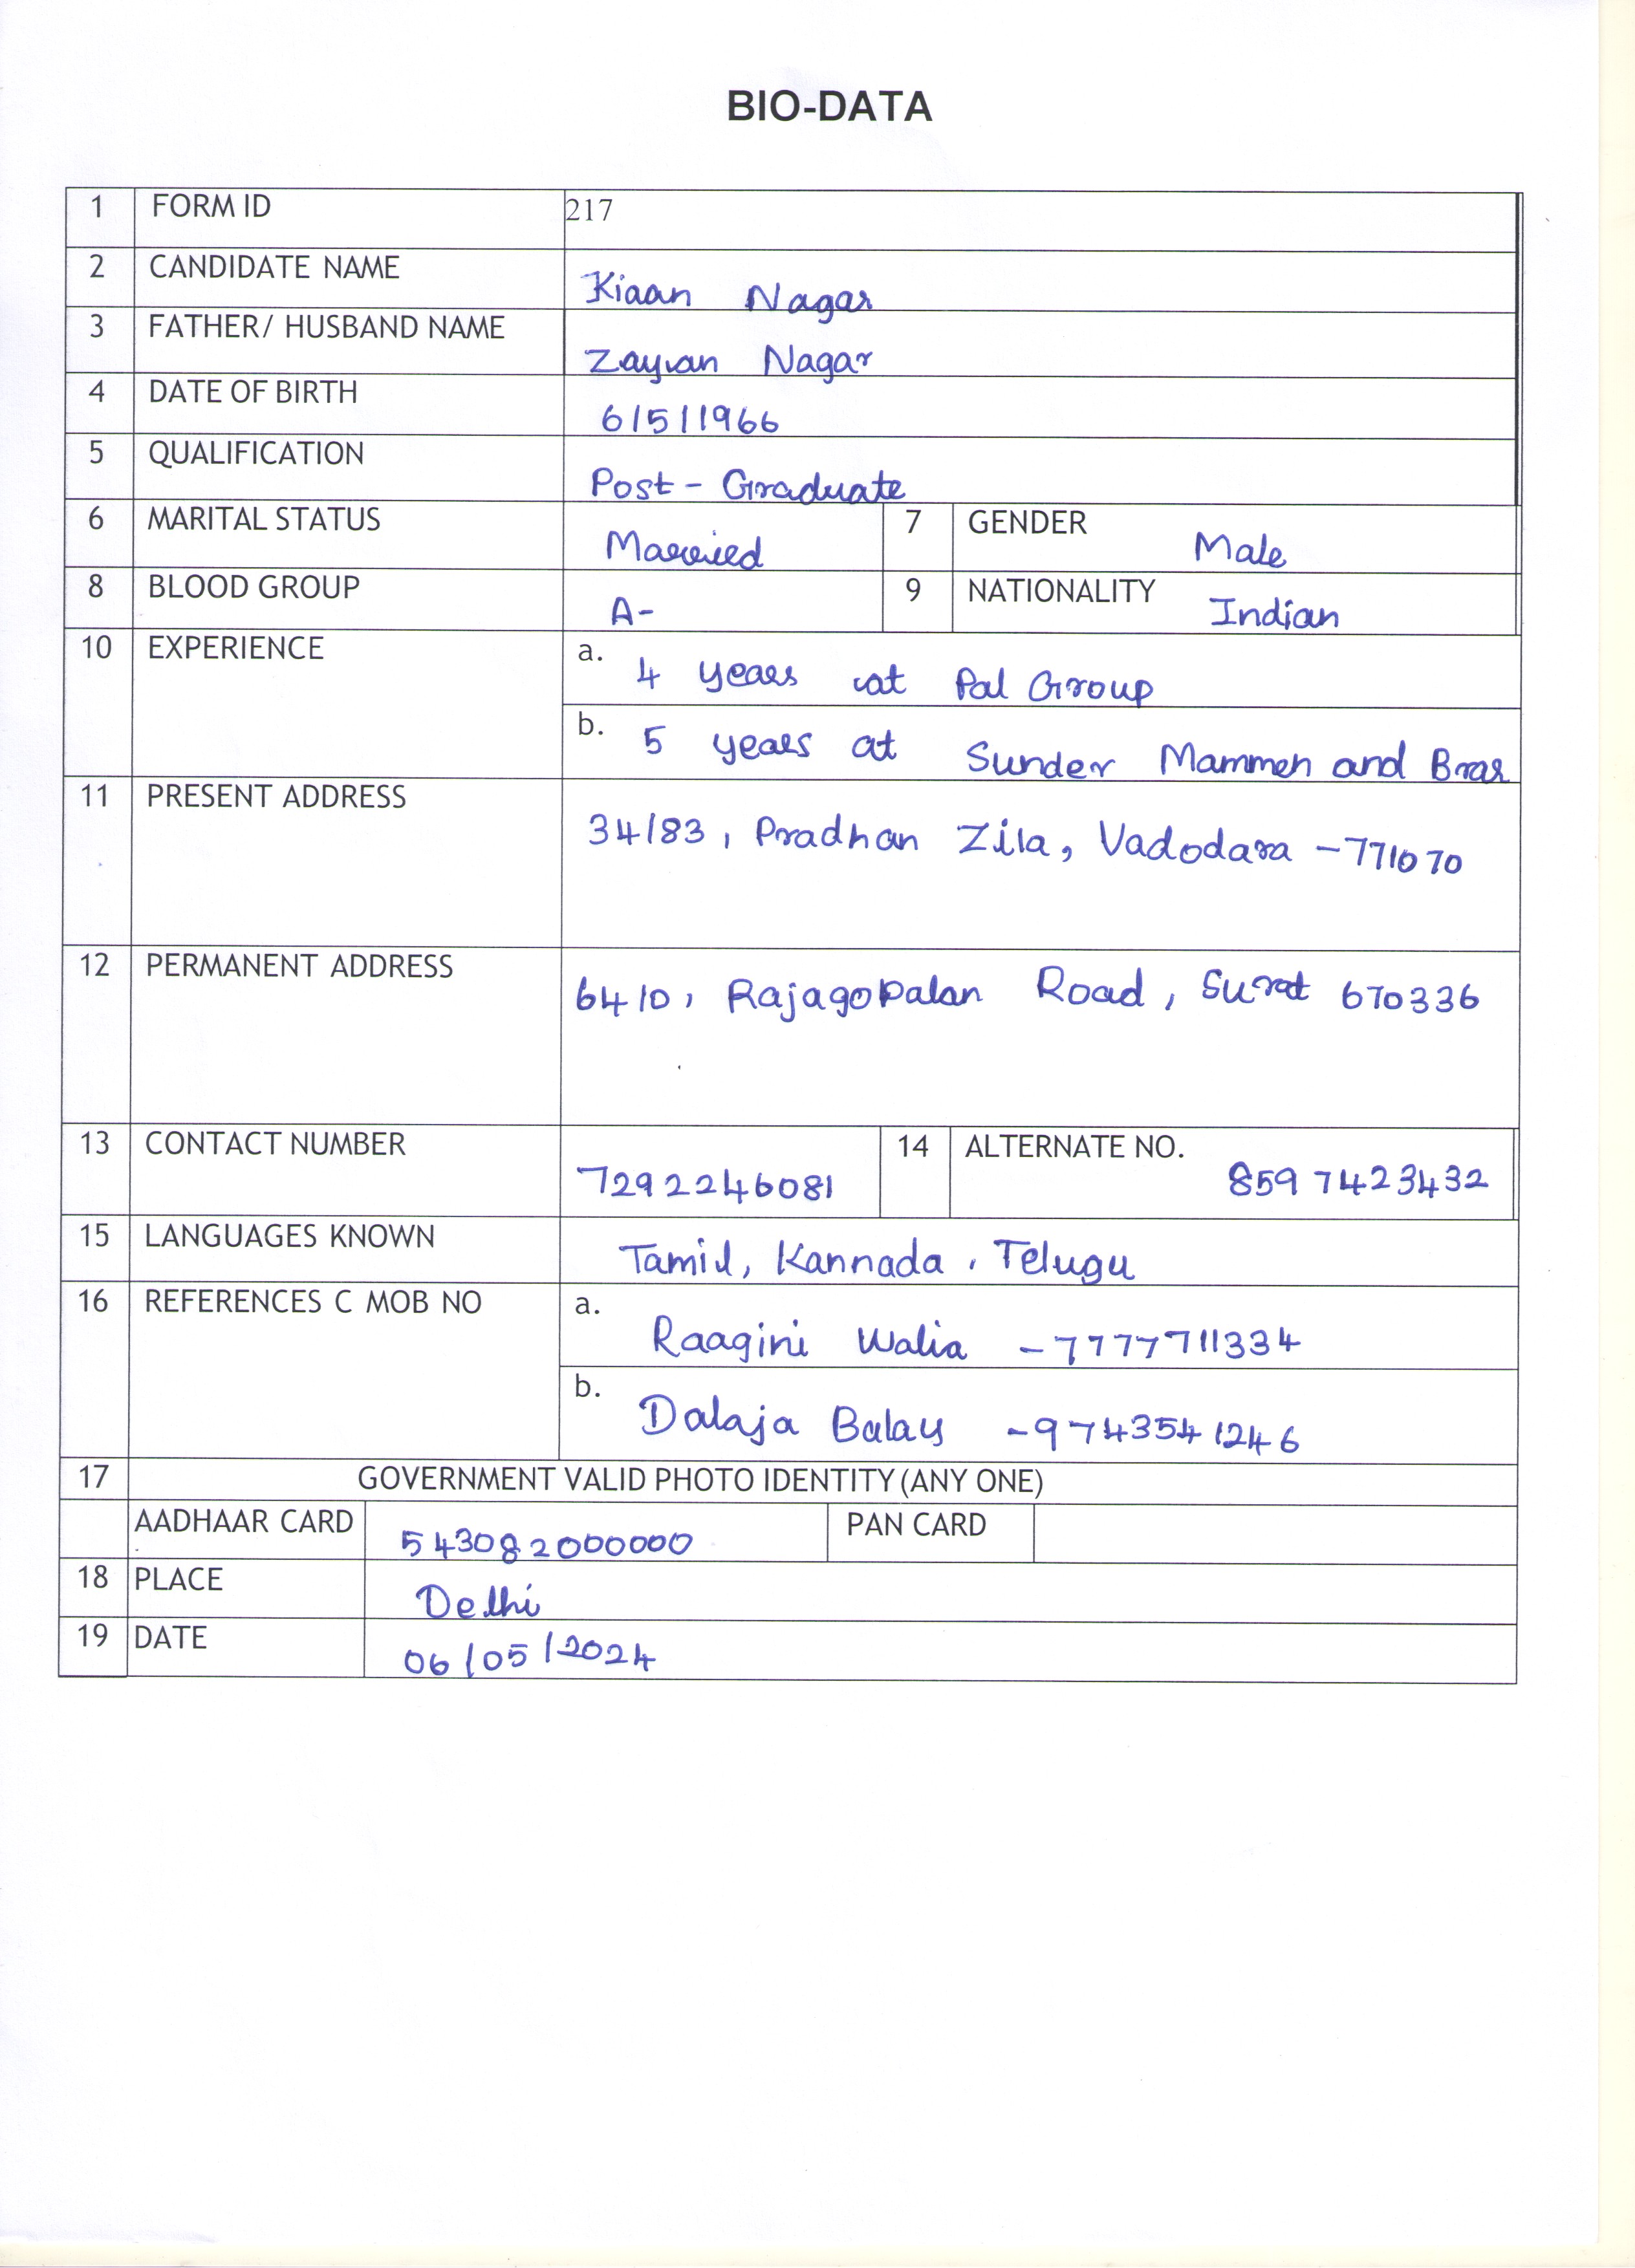 BIO-DATA
1 FORM ID 217
2 CANDIDATE NAME Kiaan Nagar
3 FATHER/ HUSBAND NAME Zayyan Nagar
4 DATE OF BIRTH 6/5/1966
5 QUALIFICATION Post - Graduate
6 MARITAL STATUS Married 7 GENDER Male
8 BLOOD GROUP A- 9 NATIONALITY Indian
10 EXPERIENCE a. 4 years at Pal Group
b. 5 years at Sunder Mammen and Brar
11 PRESENT ADDRESS 34/83, Pradhan Zila, Vadodara - 771070
12 PERMANENT ADDRESS 64/0, Rajagopalan Road, Surat 670336
13 CONTACT NUMBER 7292246081 14 ALTERNATE NO. 8597423432
15 LANGUAGES KNOWN Tamil, Kannada, Telugu
16 REFERENCES C MOB NO a. Raagini Walia - 7777711334
b. Dalaja Balay - 9743541246
17 GOVERNMENT VALID PHOTO IDENTITY (ANY ONE)
AADHAAR CARD 543082000000 PAN CARD
18 PLACE Delhi
19 DATE 06/05/2024